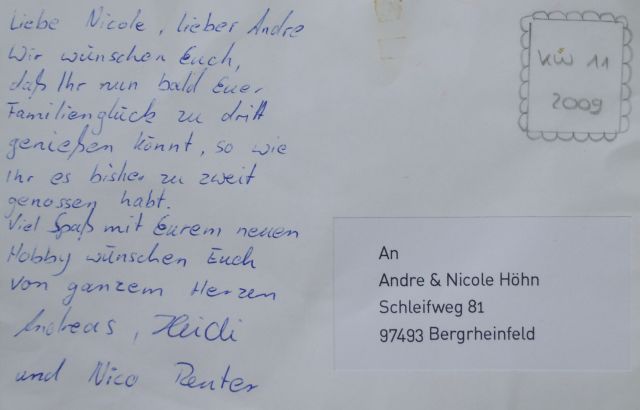 Liebe Nicole, lieber Andre
Wir wünschen Euch,
daß Ihr nun bald Euer
Familienglück zu dritt
genießen könnt, so wie
Ihr es bisher zu zweit
genossen habt.
Viel Spaß mit Eurem neuen
Hobby wünschen Euch
von ganzem Herzen
Andreas, Heidi
und Nico Reuter
KW 11
2009
An
Andre & Nicole Höhn
Schleifweg 81
97493 Bergrheinfeld